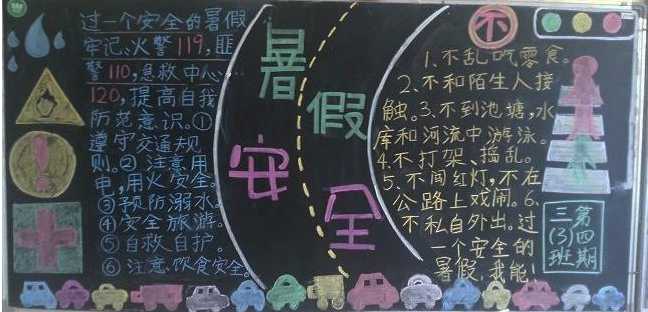 过一个安全的暑假
牢记、火警119,匪
警110,急救中心…
120,提高自我
防范意识。①
遵守交通规
则。②注意用
电,用火安全。
③预防溺水。
④安全旅游。
⑤自救自护。
⑥注意饮食安全。
暑假
安全
不
1、不乱吃零食。
2、不和陌生人接
触。3、不到池塘,水
库和河流中游泳。
4、不打架、捣乱。
5、不闯红灯,不在
公路上戏闹。6、
不私自外出。过
一个安全的
暑假,我能!
第四期
三(3)班